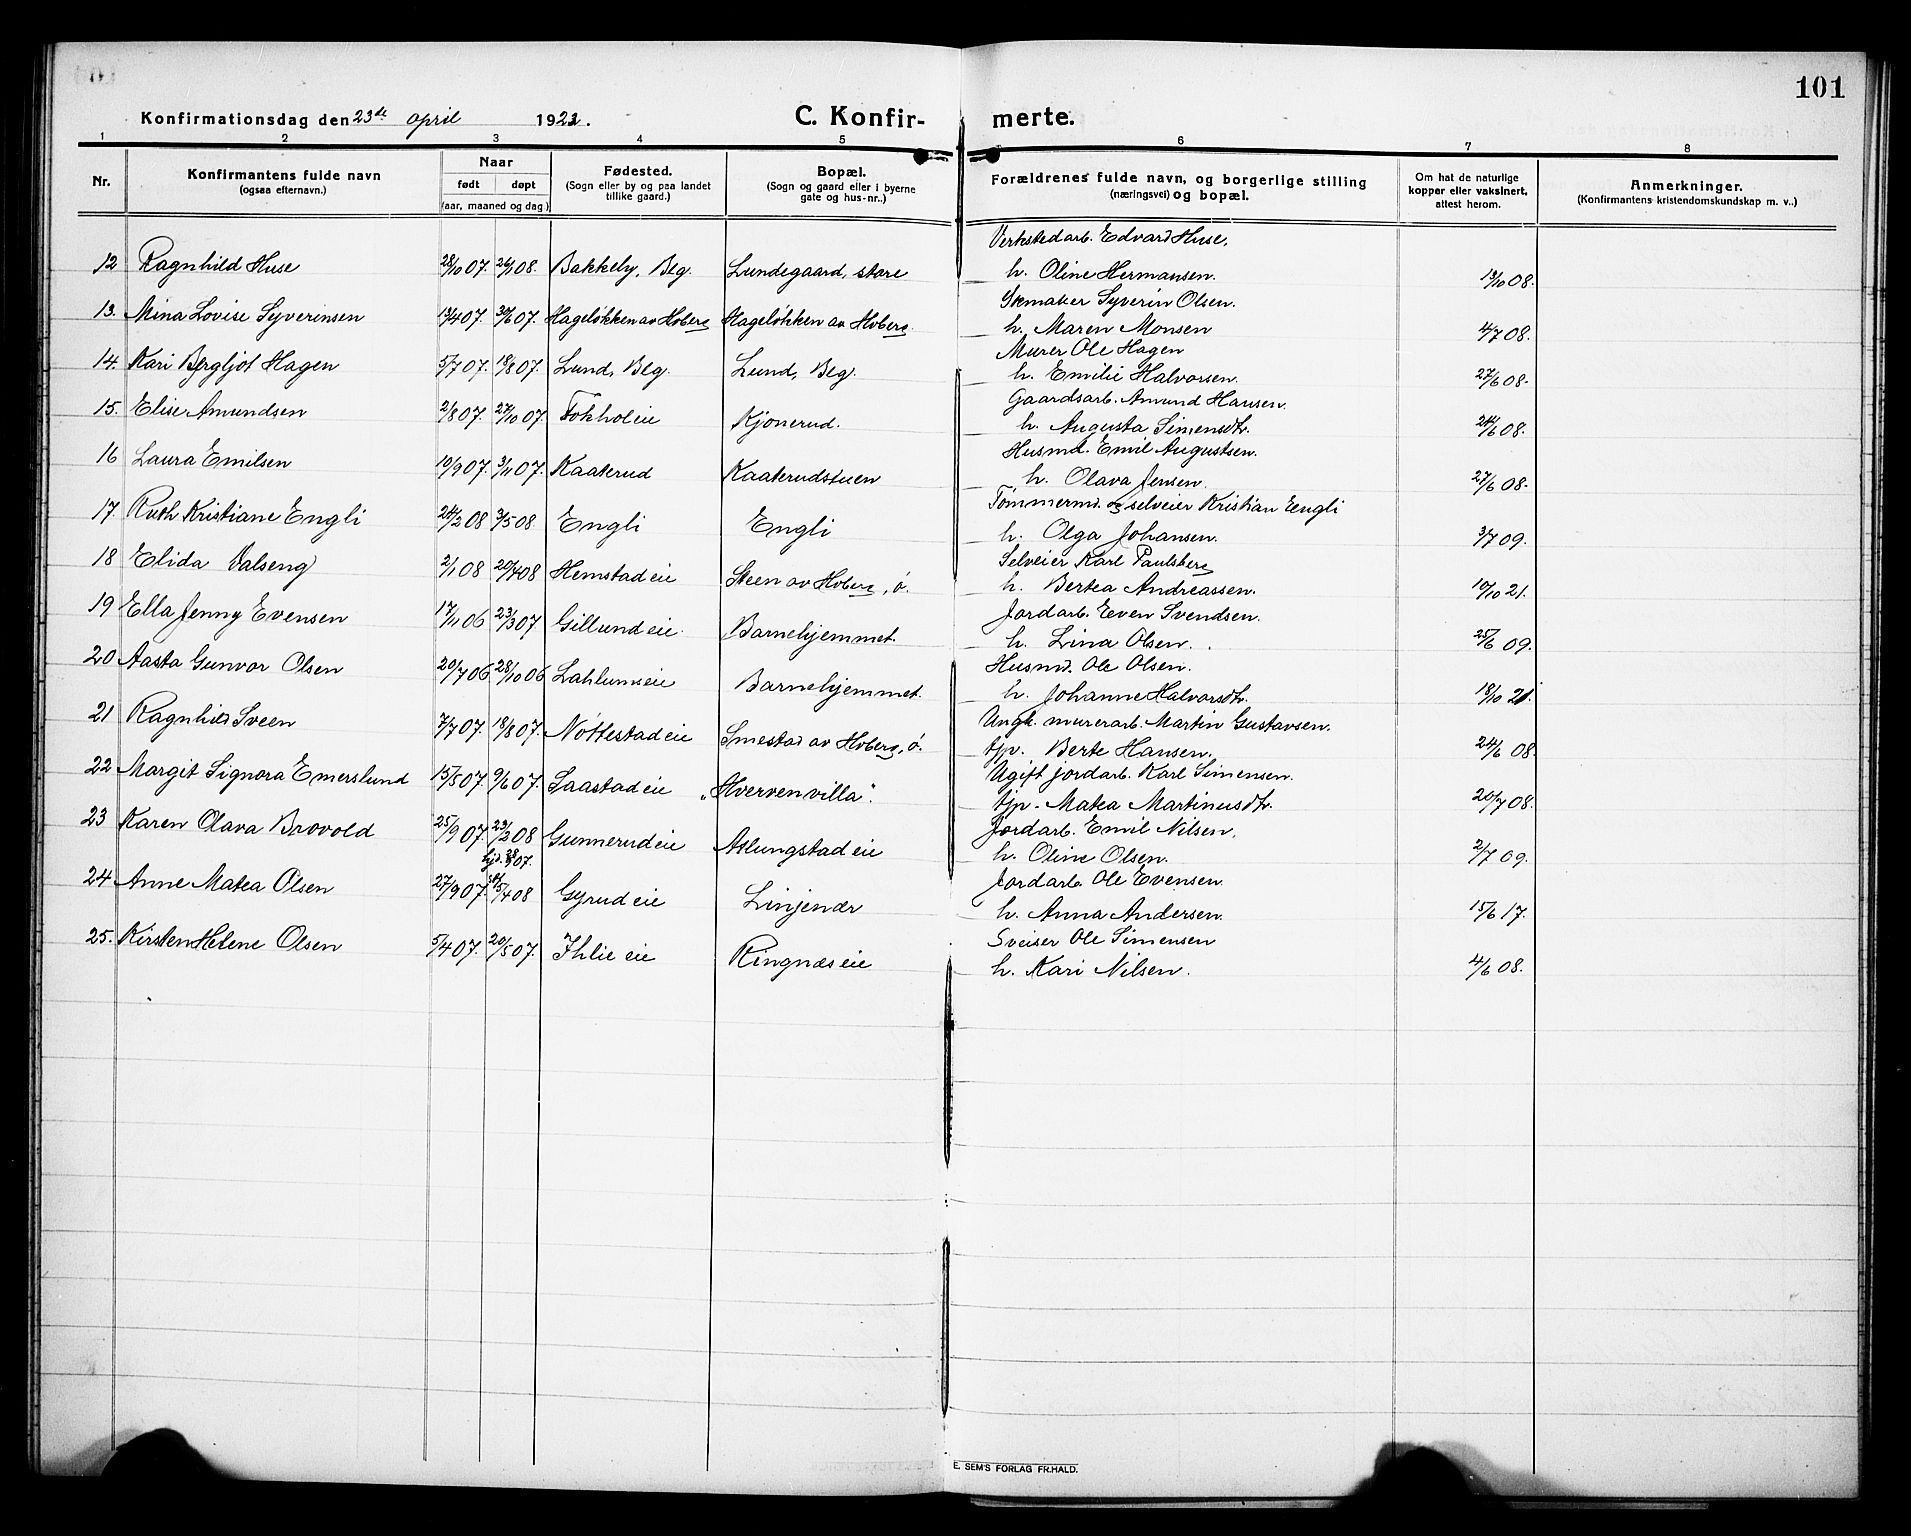 101
Konfirmationsdag den 23de april 1922.
C. Konfir-
merte.
1 2 3 4 5 6 7 8
Nr.
Konfirmantens fulde navn
(ogsaa efternavn.)
Naar
født døpt
(aar, maaned og dag)
Fødested.
(Sogn eller by og paa landet
tillike gaard.)
Bopæl.
(Sogn og gaard eller i byerne
gate og hus-nr..)
Forældrenes fulde navn, og borgerlige stilling
(næringsvei) og bopæl.
Om hat de naturlige
kopper eller vaksinert,
attest herom.
Anmerkninger.
(Konfirmantens kristendomskundskap m. v..)
Verkstedarb. Edvard Huse,
12 Ragnhild Huse 28/10 07. 26/1 08. Bakkely, Blg. Lundegaard, store h. Oline Hermansen. 13/10 08.
Skomaker Syverin Olsen.
13. Mina Lovise Syverinsen 13/4 07. 30/6 07. Hageløkken av Hoberg Hageløkken av Hoberg. h. Maren Monsen 4/7 08.
Murer Ole Hagen
14. Kari Bergljot Hagen 5/7 07. 18/8 07. Lund, Blg. Lund, Blg. h. Emilie Halvorsen. 27/6 08.
Gaardsarb. Amund Hansen.
15. Elise Amundsen 2/8 07. 27/10 07. Fokhol eie Kjønerud. h. Augusta Simensdtr. 24/6 08.
Husmd. Emil Augustsen.
16 Laura Emilsen 10/9 07. 3/11 07. Kaakerud Kaakerudstuen h. Olava Jensen. 27/6 08.
Tømmermd. og selveier Kristian Engli
17. Ruth Kristiane Engli 24/2 08 3/5 08. Engli Engli h. Olga Johansen. 3/7 09.
Selveier Karl Paulsberg
18 Elida Valseng 2/1 08 20/4 08 Hemstad eie Steen av Hoberg, ö. h. Bertea Andreassen. 10/10 21.
Jordarb. Even Svendsen.
19 Ella Jenny Evensen 17/11 06 23/3 07 Gillund eie. Barnehjemmet. h. Lina Olsen. 25/6 09.
Husmd. Ole Olsen.
20 Aasta Gunvor Olsen 20/7 06 28/10 06 Lahlums eie Barnehjemmet. h. Johanne Halvorsdtr. 18/10 21.
Ungk. murerarb. Martin Gustavsen.
21 Ragnhild Sveen 7/7 07. 18/8 07. Nøttestad eie Smestad av Hoberg, ö. tjp. Berte Hansen. 24/6 08.
Ugift jordarb. Karl Simensen.
22 Margit Signora Emerslund 15/5 07. 9/6 07. Saastad eie „Hvervenvilla". tjp. Matea Martinusdtr. 20/7 08.
Jordarb. Emil Nilsen.
23 Karen Olava Brovold 25/9 07. 23/2 08 Gunnerud eie Aslungstad eie h. Oline Olsen. 2/7 09.
Jordarb. Ole Evensen.
24 Anne Matea Olsen 27/9 07. 5/4 08 Gyrud eie Linjenær h. Anna Andersen. 15/6 17.
Sveiser Ole Simensen
25. Kirsten Helene Olsen 5/4 07. 20/5 07. Ihlie eie Ringnæs eie h. Kari Nilsen. 4/6 08.
E. SEM'S FORLAG FR.HALD.